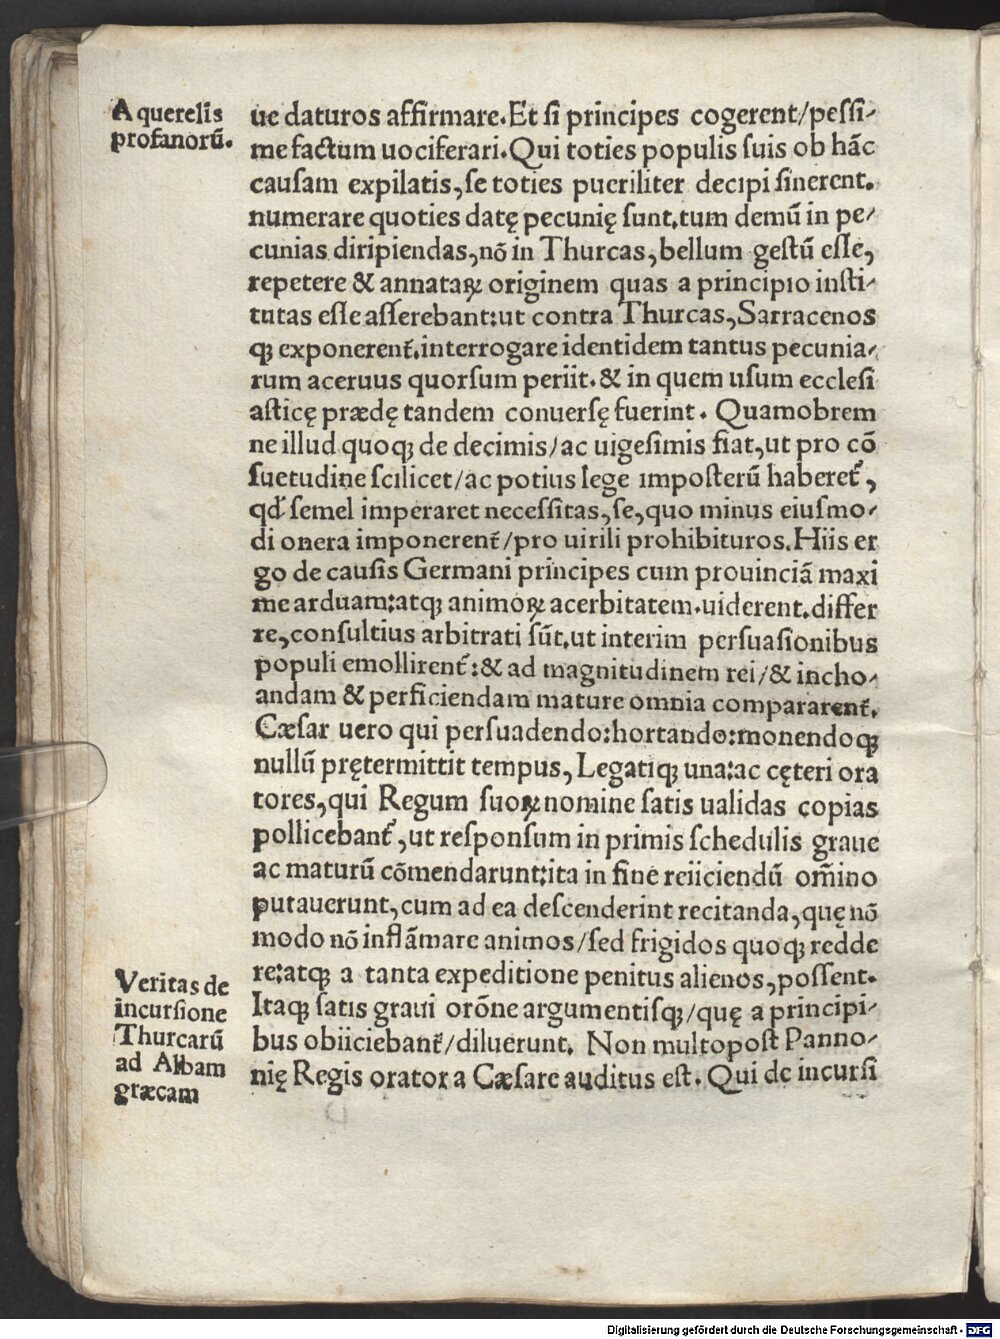 A querelis
profanorū.
ue daturos affirmare. Et ſi principes cogerent/peſſi-
me factum uociferari. Qui toties populis ſuis ob hāc
cauſam expilatis, ſe toties pueriliter decipi ſinerent.
numerare quoties datę pecunię ſunt. tum demū in pe-
cunias diripiendas, nō in Thurcas, bellum geſtū eſſe,
repetere & annataꝝ originem quas a principio inſti-
tutas eſſe aſſerebant: ut contra Thurcas, Sarracenos
qꝫ exponerent̃. interrogare identidem tantus pecunia-
rum aceruus quorſum periit. & in quem uſum eccleſi
aſticę prædę tandem conuerſę fuerint. Quamobrem
ne illud quoqꝫ de decimis/ac uigeſimis fiat, ut pro cō
ſuetudine ſcilicet/ac potius lege impoſterū haberet̃,
qd̛ ſemel imperaret neceſſitas, ſe, quo minus eiuſmo-
di onera imponerent̃/pro uirili prohibituros. Hiis er
go de cauſis Germani principes cum prouinciā maxi
me arduam: atqꝫ animoꝝ acerbitatem. uiderent. differ
re, conſultius arbitrati ſūt. ut interim perſuaſionibus
populi emollirent̃: & ad magnitudinem rei/& incho-
andam & perficiendam mature omnia compararent̃.
Cæſar uero qui perſuadendo: hortando: monendoqꝫ
nullū prętermittit tempus, Legatiqꝫ una: ac cęteri ora
tores, qui Regum ſuoꝝ nomine ſatis ualidas copias
pollicebant̃, ut reſponſum in primis ſchedulis graue
ac maturū cōmendarunt: ita in fine reiiciendū om̄ino
putauerunt, cum ad ea deſcenderint recitanda, quę nō
modo nō inflāmare animos/ſed frigidos quoqꝫ redde
re: atqꝫ a tanta expeditione penitus alienos, poſſent.
Itaqꝫ ſatis graui orōne argumentiſqꝫ/quę a principi-
bus obiiciebant̃/diluerunt. Non multopoſt Panno-
nię Regis orator a Cæſare auditus eſt. Qui de incurſi
Veritas de
incurſione
Thurcarū
ad Albam
græcam
Digitalisierung gefördert durch die Deutsche Forschungsgemeinschaft - DFG